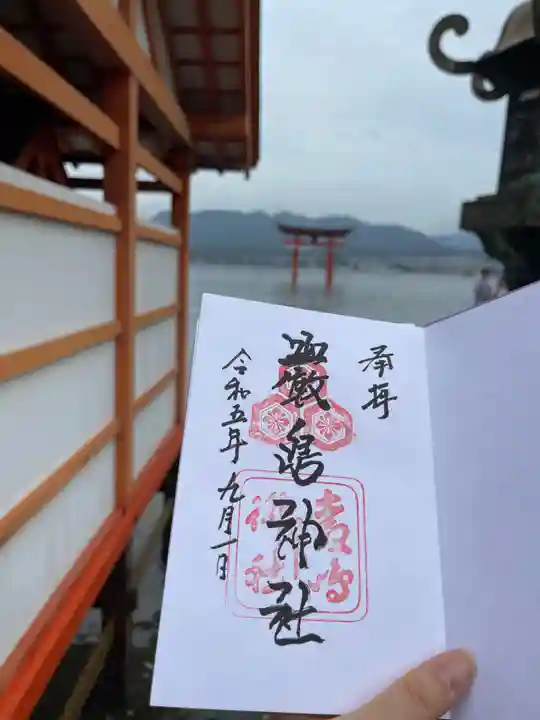 奉拝
嚴島神社
令和五年九月一日
嚴島
神社